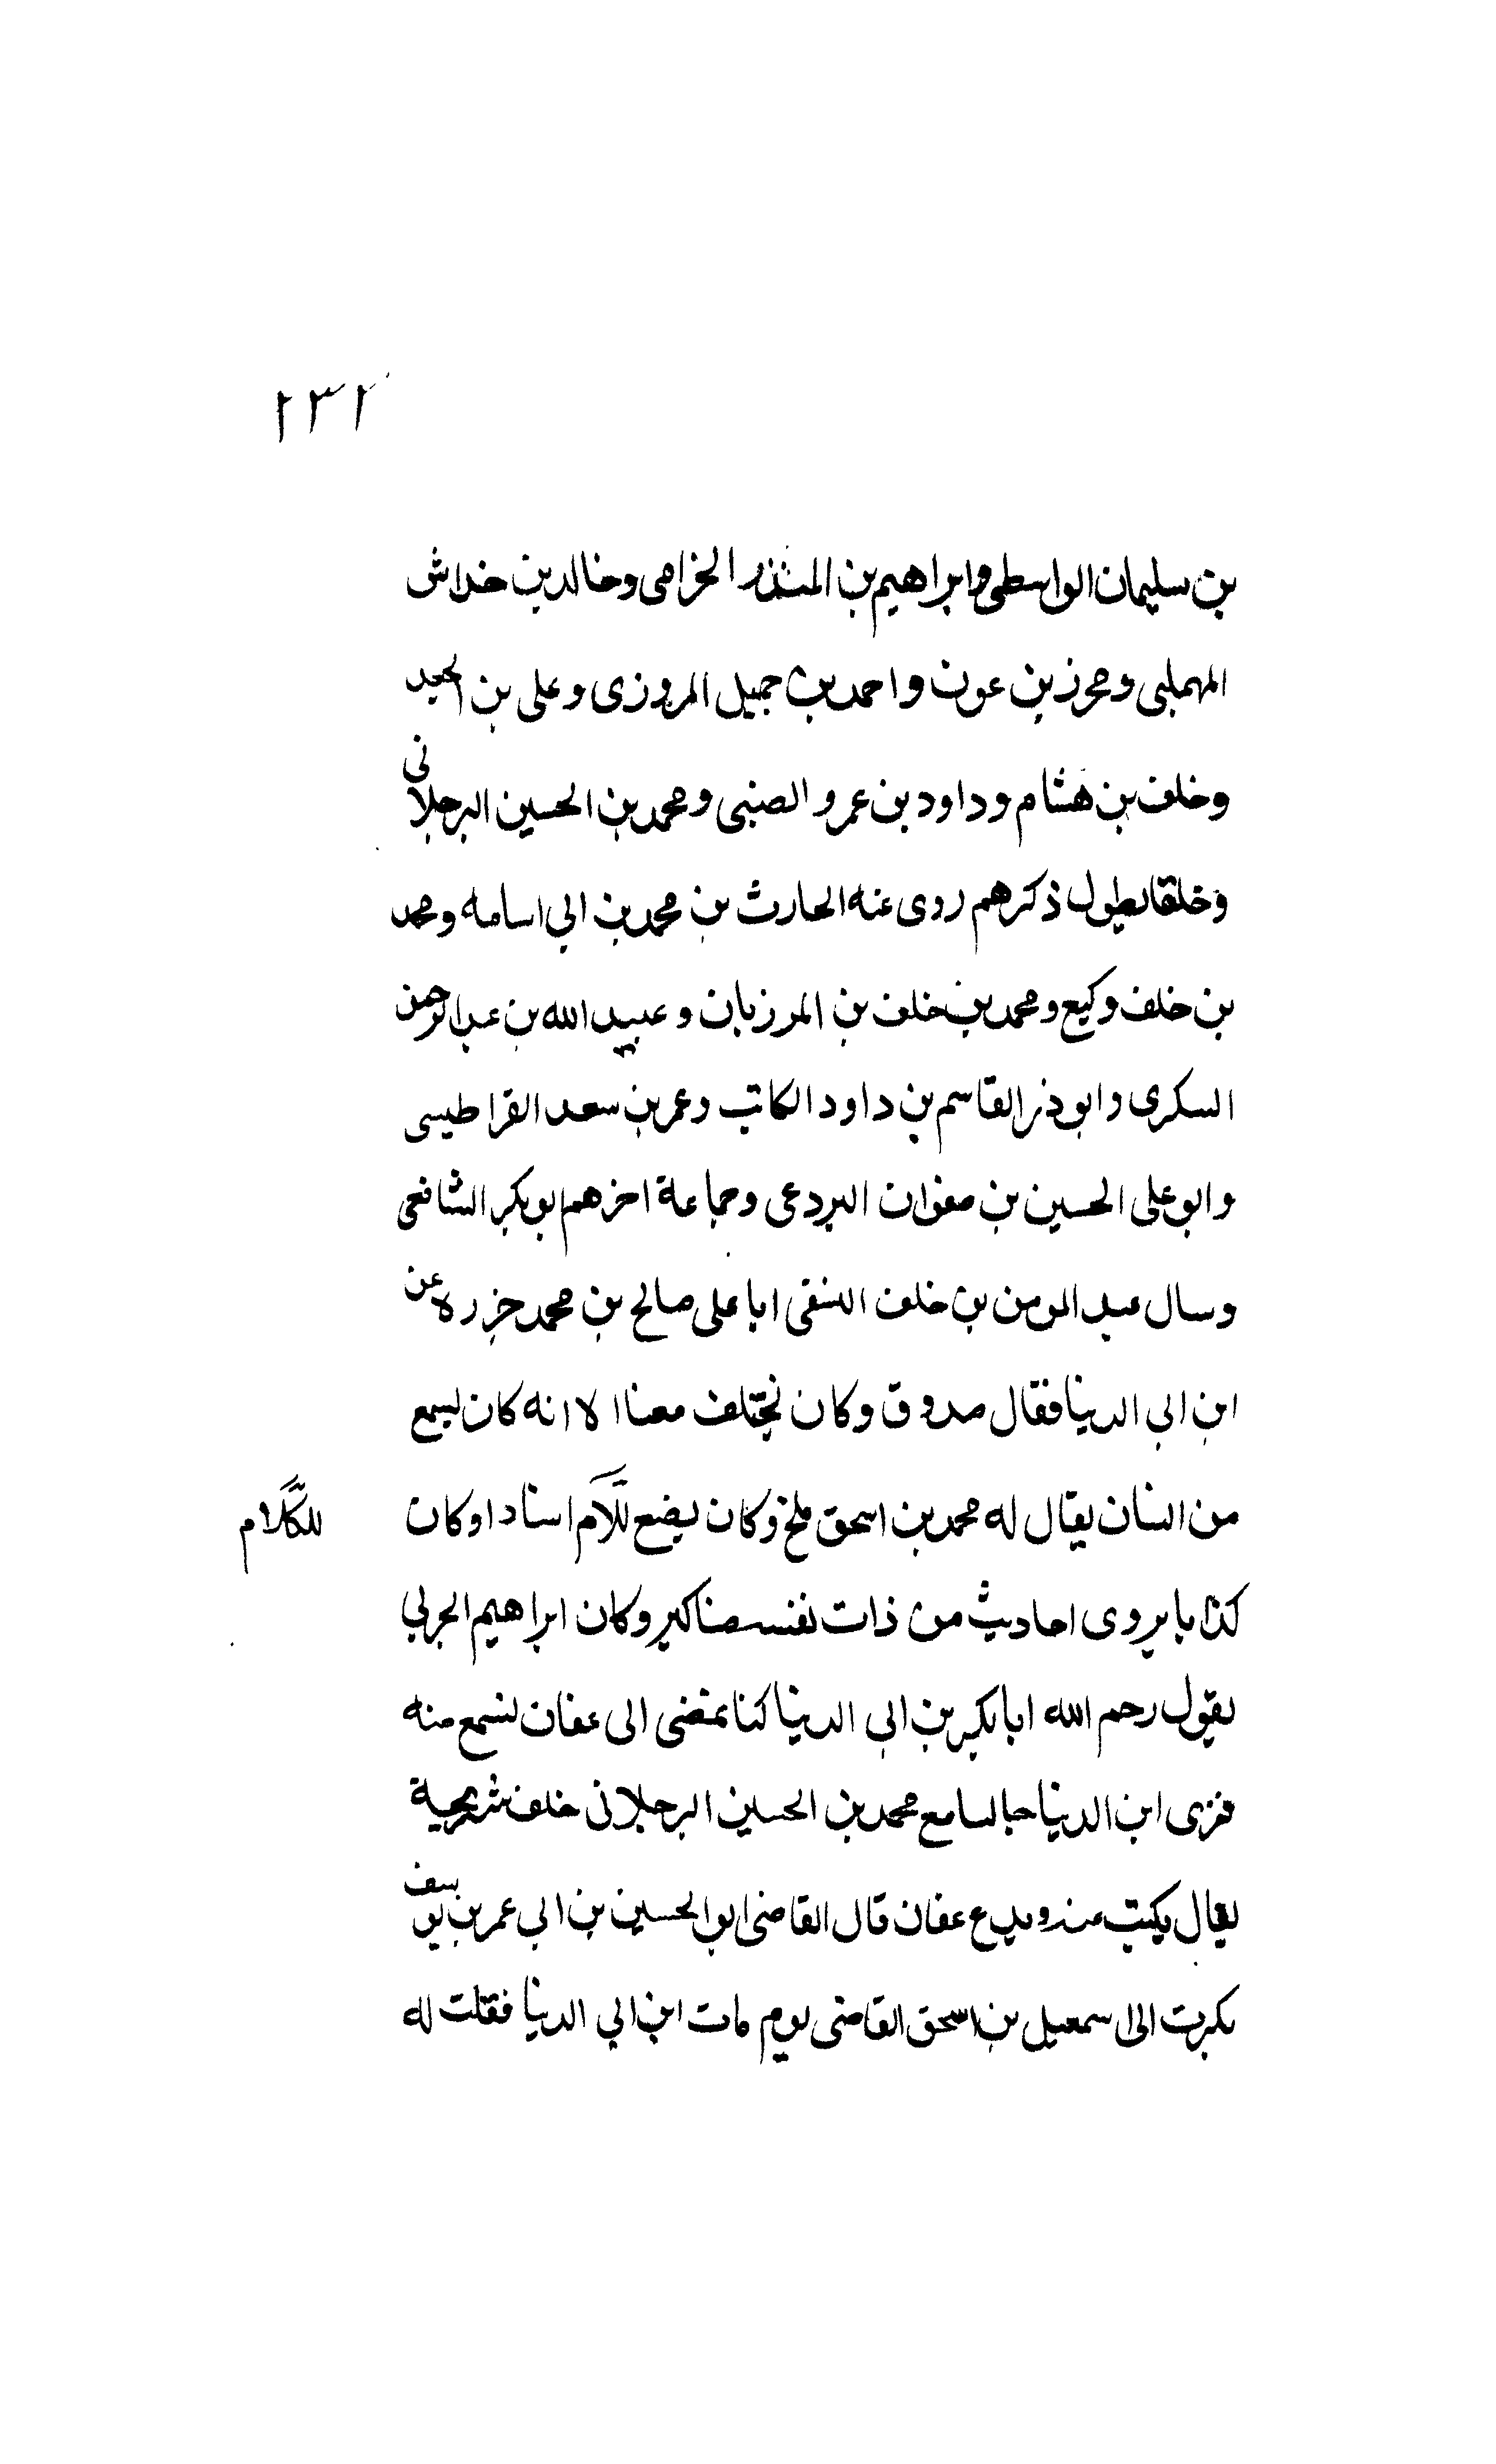 ١٣١
بن سليمان الواسطى وابراهيم بن المنذر الخزامى وخالد بن خداش
المهملبى ومحرز بن عون واحمد بن جميل المروزى وعلى بن الجعد
وخلف بن هشام وداود بن عمرو الضبى ومحمد بن الحسين البرجلانى
وخلقا يطول ذكرهم روى عنه الحارث بن محمد بن ابي اسامه ومحمد
بن خلف وكيع ومحمد بن خلف بن المرزبان وعبيد الله بن عبد الرحمن
السكرى وابو ذر القاسم بن داود الكاتب وعمر بن سعد القراطيسى
وابو على الحسين بن صفوان البردعى وجماعة اخرهم ابو بكر الشافعى
وسال عبد المومن بن خلف النسفى ابا على صالح بن محمد جزره عن
ابن ابي الدنيا فقال صدوق وكان يختلف معنا الا انه كان يسمع
من انسان يقال له محمد بن اسحق بلخى وكان يضع للكلام اسنادا وكان
للكلام
كذابا يروى احاديث من ذات نفسه مناكير وكان ابراهيم الحربي
يقول رحم الله ابا بكر بن ابي الدنيا كنا نمضى الى عفان نسمع منه
فنرى ابن الدنيا جالسا مع محمد بن الحسين البرجلانى خلف شريجة
يقال يكتب عنه ويدع عفان قال القاضى ابو الحسين بن ابي عمر بن يوسف
بكرت الى اسمعيل بن اسحق القاضى يوم مات ابن ابي الدنيا فقلت له